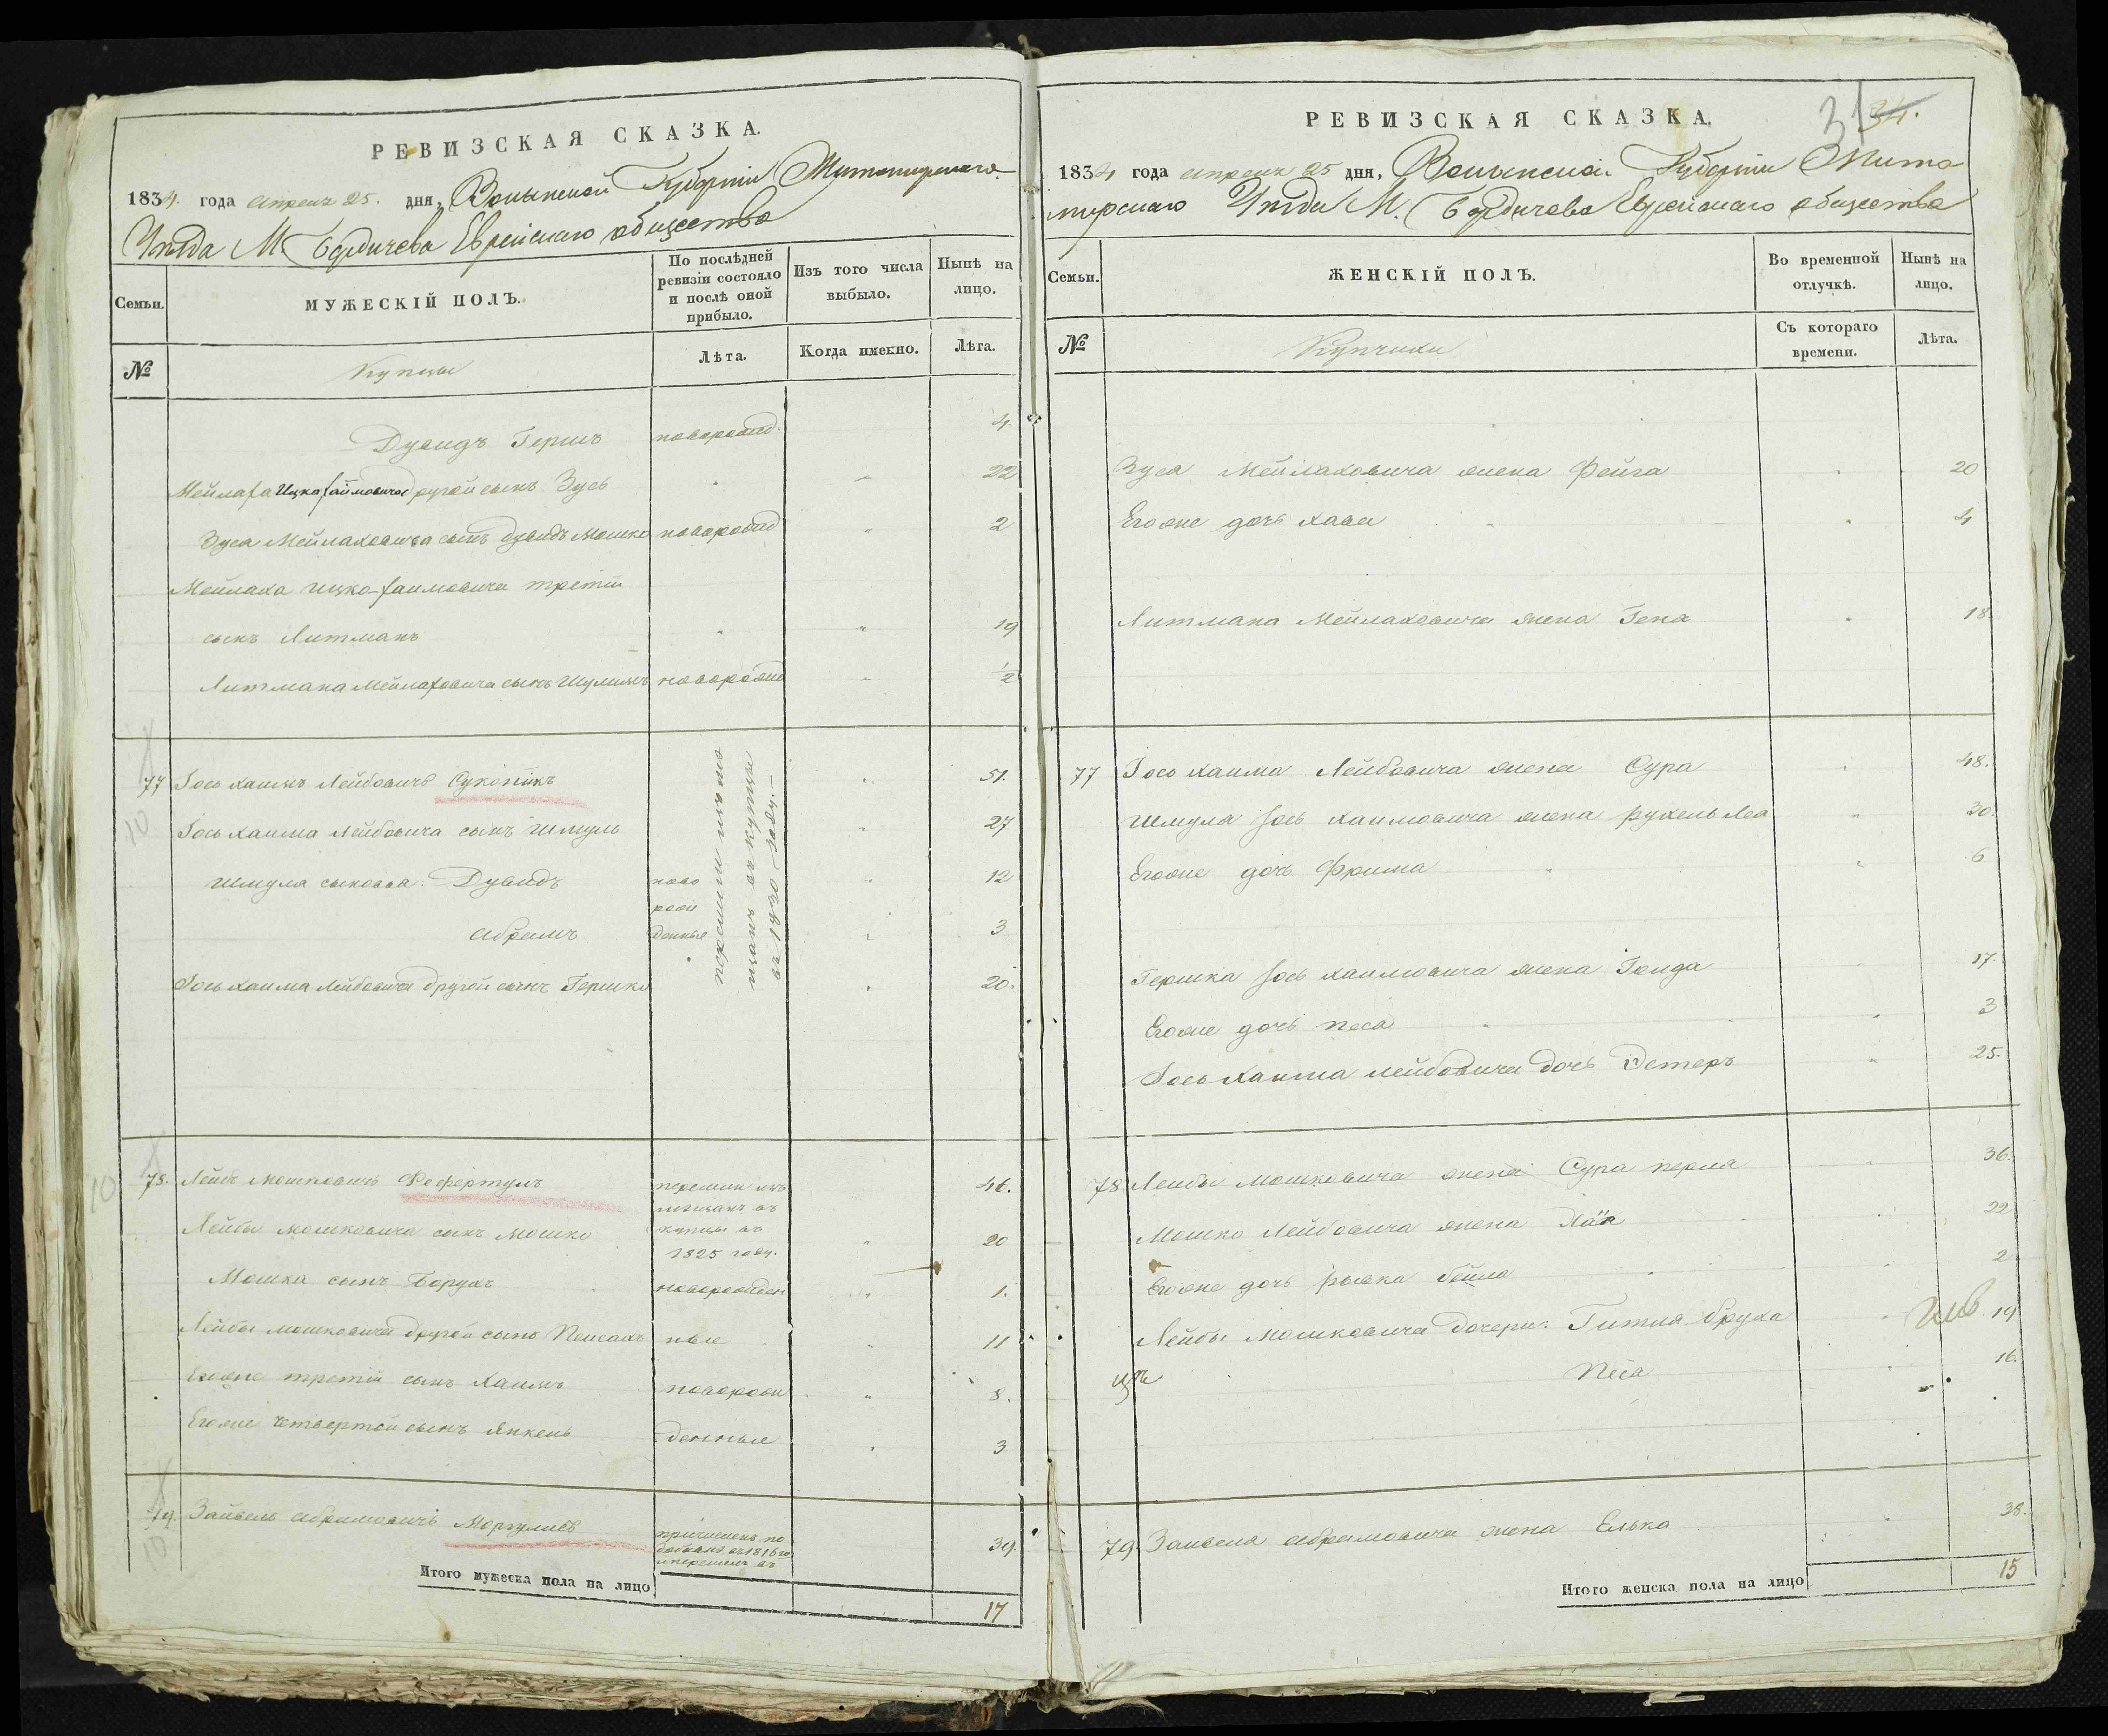 РЕВИЗСКАЯ СКАЗКА.
1834. года апреля 25. дня, Волынской Губерніи Житомирскаго
Уѣзда М. Бердичева Еврейскаго общества
Семьи.
МУЖЕСКІЙ ПОЛЪ.
По послѣдней
ревизіи состояло
и послѣ оной
прибыло.
Изъ того числа
выбыло.
Нынѣ на
лицо.
№
Купцы
Лѣта.
Когда именно.
Лѣта.
Дувидъ Гершъ новорожд. 4.
Мейлаха Ицка Хаймовича другой сынъ Зусь " " 22
Зуся Мейлаховича сынъ Дувидъ Мошко новорожд " 2
Мейлаха Ицко-Хаимовича третій
сынъ Литманъ " " 19
Литмана Мейлаховича сынъ Шулимъ новорожд " ½
77 Іось Хаимъ Лейбовичъ " 51.
10
Іось Хаима Лейбовича сынъ Шмуль " 27
Шмула сыновья: Дувидъ ново " 12
рож
Абрамъ денные " 3
Іось Хаима Лейбовича другой сынъ Гершко " 20.
перешли изъ мѣ
щанъ въ купцы
въ 1820 году.—
78. Лейбъ Мошковичъ перешли изъ 46.
мещанъ въ
Лейбы Мошковича сынъ Мошко купцы въ " 20
1825 году.
Мошка сынъ Борухъ новорожден " 1.
Лейбы Мошковича другой сынъ Пейсахъ ные " 11
Егоже третій сынъ Хаимъ новорож " 8.
Егоже четвертой сынъ Янкель денные " 3
10
79 Зайвель Абрамовичъ Моргулисъ причисленъ по 39.
10
добавк въ 1816 го
и перешелъ въ
Итого мужеска пола на лицо
17
РЕВИЗСКАЯ СКАЗКА.
31 34.
1834 года апреля 25 дня, Волынской Губерніи Жито
мирскаго Уѣзда М. Бердичева Еврейскаго общества
Семьи.
ЖЕНСКІЙ ПОЛЪ.
Во временной
отлучкѣ.
Нынѣ на
лицо.
№
Купчихи
Съ котораго
времени.
Лѣта.
Зуся Мейлаховича жена Фейга " 20
Егоже дочь Хава " " 4
Литмана Мейлаховича жена Гена " 18.
77 Іось Хаима Лейбовича жена Сура " 48.
Шмула Іось Хаимовича жена Рухель Леа " 30.
Егоже дочь Фрима " " 6
Гершка Іось Хаимовича жена 17.
Егоже дочь Песа " " 3
Іось Хаима Лейбовича дочь Эстеръ " 25.
78 Лейбы Мошковича жена Сура Перля " 36.
Мошко Лейбовича жена Хая 22
Егоже дочь Ривка Бейла " 2
Лейбы Мошковича дочери: Гитля Бруха " 19
Песя 16.
79. Занвеля Абрамовича жена Елька " 38.
Итого женска пола на лицо
15